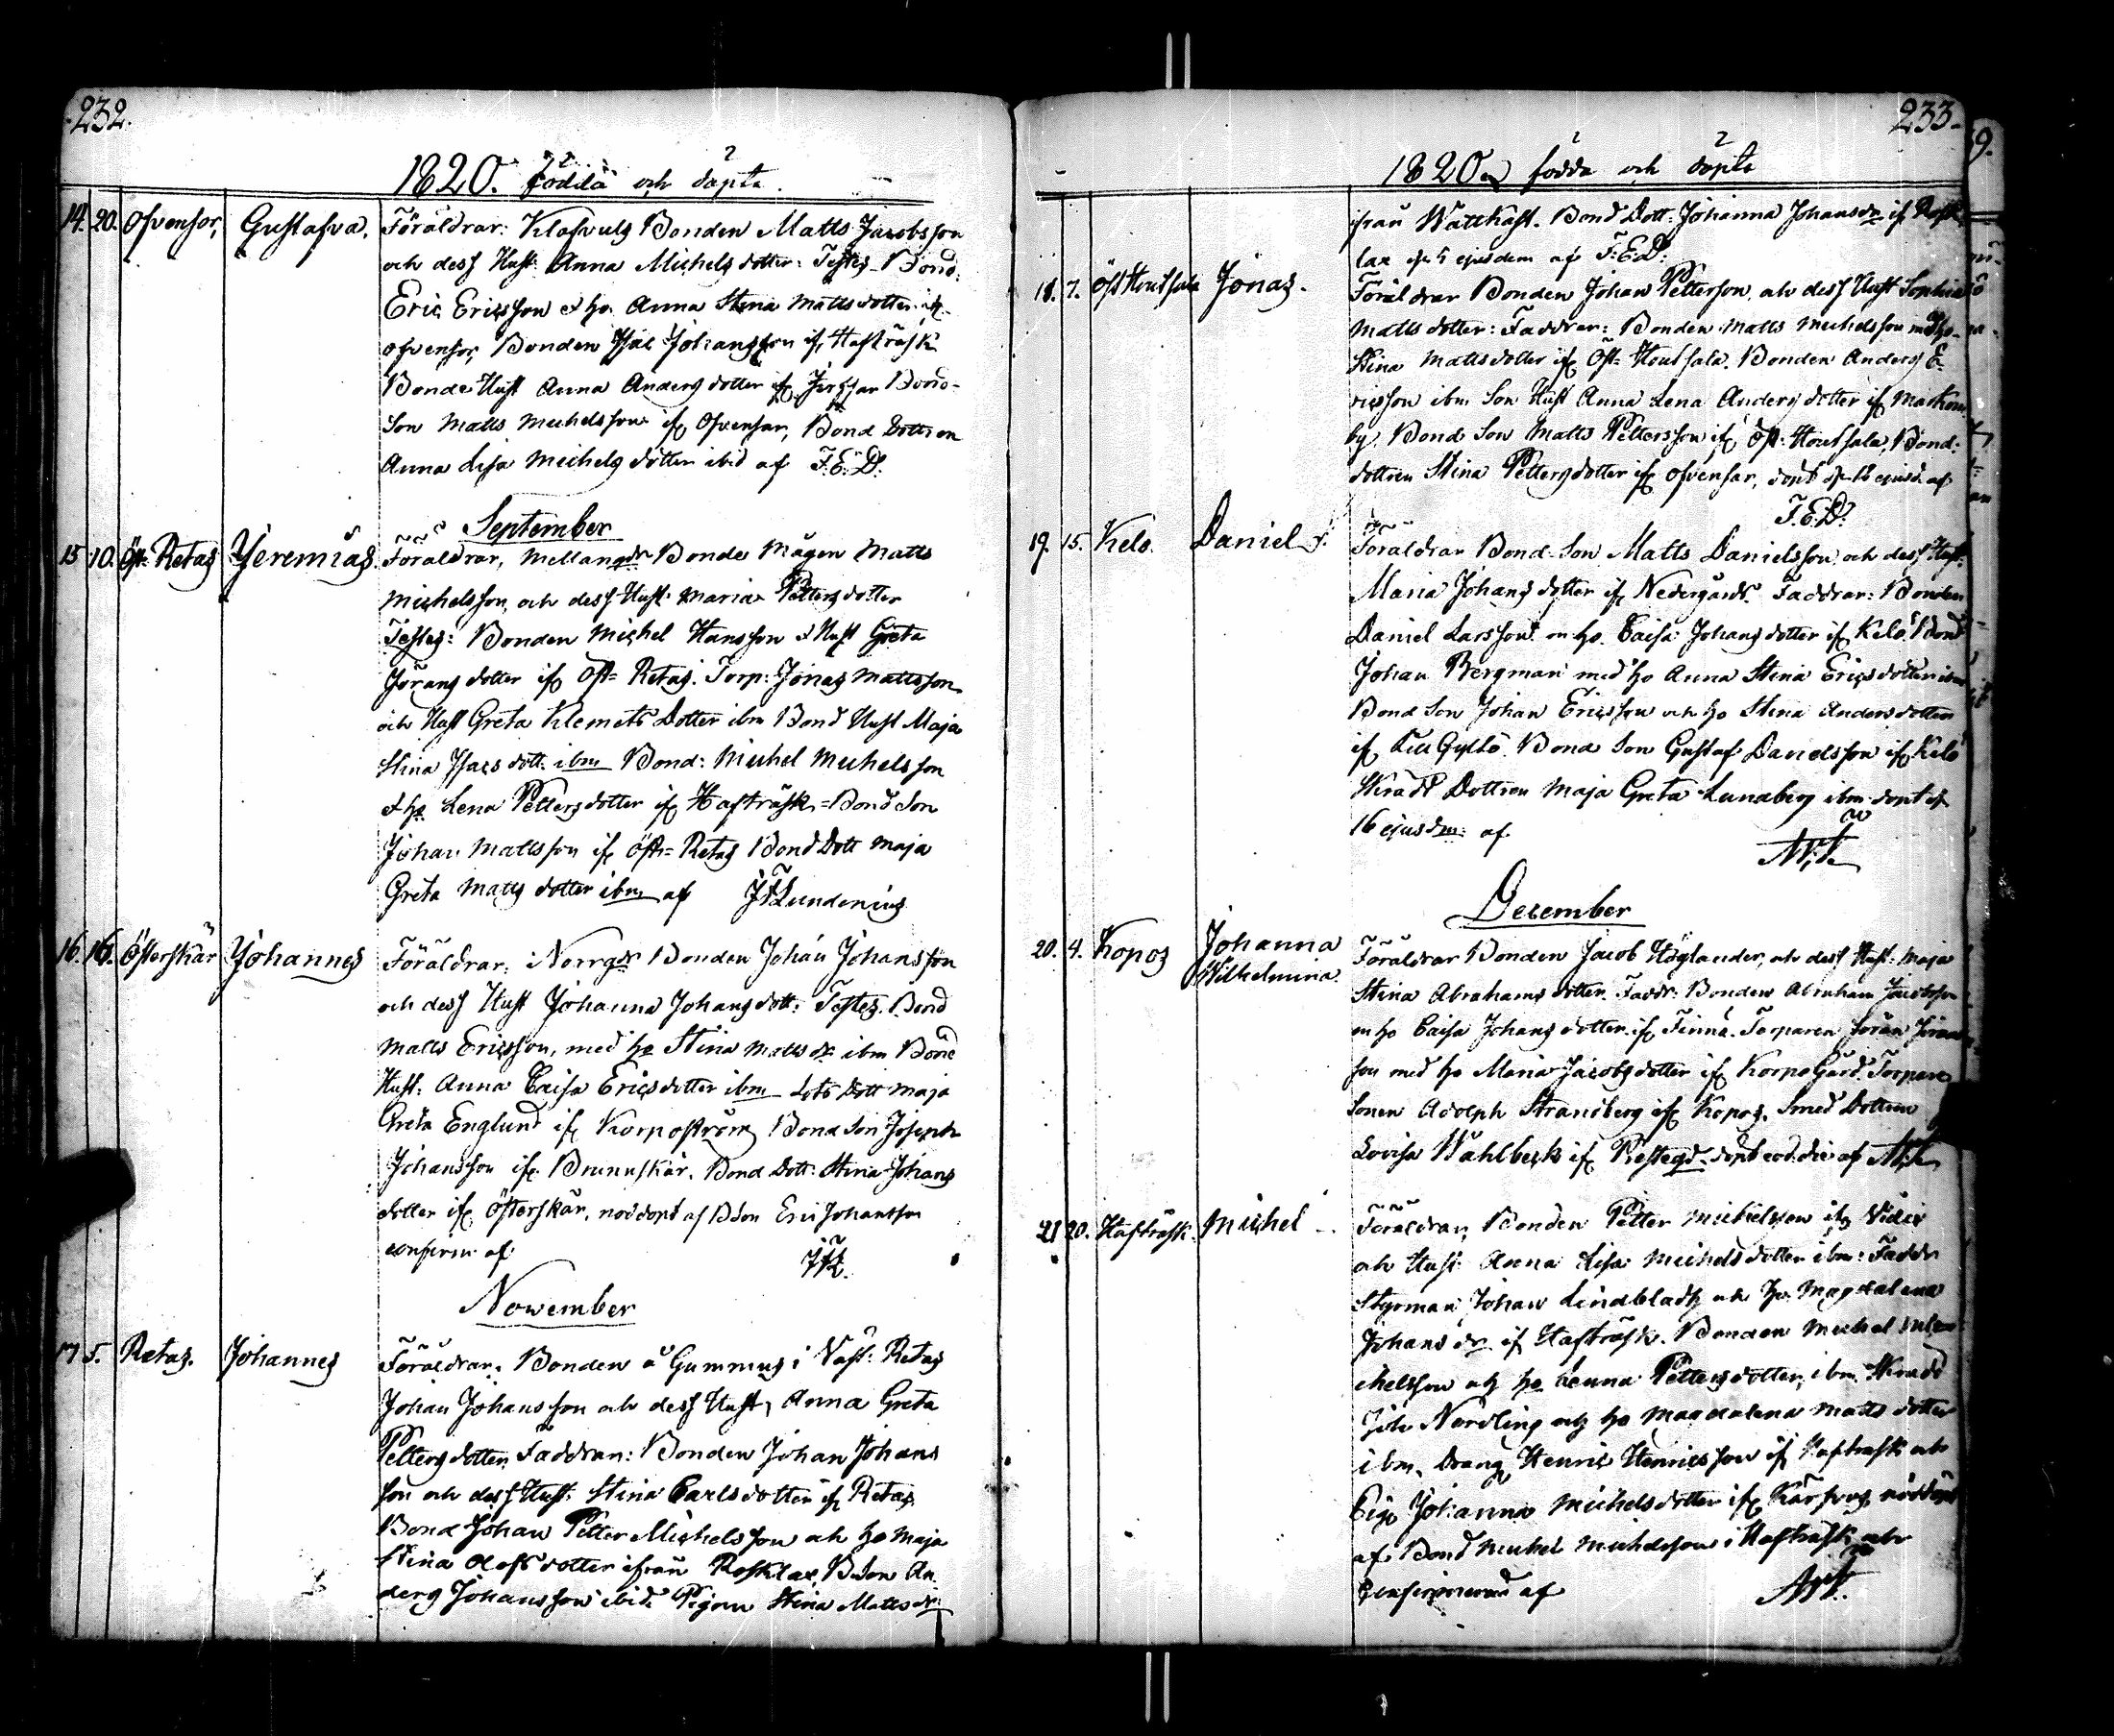 232.
1820. födda och döpta.
14. 20. Ofvensor, Gustafva. Föräldrar: Klafvuls Bonden Matts Jacobsson
och dess Hust. Anna Michelsdotter: Testes Bond.
Eric Ericsson & ho. Anna Stina Mattsdotter
ofvensor, Bonden Isac Johansson if. Hafträsk
Bonde Hust Anna Andersdotter if. Bond-
Son Matts Michelsson if. Ofvensar, Bond Dottren
Anna Lisa Michelsdotter ibid af F.E.D.
September
15 10. Öst. Retas Jeremias Föräldrar, Mellangds Bonde Mågen Matts
Michelsson, och dess Hust. Maria Pettersdotter
Testes: Bonden Michel Hansson & Hust Greta
Göransdotter if Öst= Retas. Torp: Jonas Mattsson
och Hust Greta Klemets Dotter ibm Bond Hust Maja
Stina Isacs dott. ibm Bond: Michel Michelsson
& ho Lena Pettersdotter if Hafträsk = Bond Son
Johan Mattsson if Öst= Retas Bond Dott Maja
Greta Matts dotter ibm af J F Lundenius
16. 16. Österskär Johannes Föräldrar: Norrgds Bonden Johan Johansson
och dess Hust Johanna Johansdott: Testes. Bond
Matts Ericsson, med ho Stina Mattsdr ibm Bond
Hust: Anna Caisa Ericsdotter ibm Lots Dott Maja
Greta Englund if Korpoström Bond Son Joseph
Johansson if. Brunskär. Bond Dott: Stina Johans
dotter if Österskär, nöddopt af BSon Eric Johansson
confirm af JFL.
November
17 5. Retas. Johannes Föräldrar: Bonden å Gummus i Väst: Retas
Johan Johansson och dess Hust, Anna Greta
Pettersdotter, Faddrar: Bonden Johan Johans
son och dess Hust. Stina Carlsdotter if Retas
Bond Johan Petter Michelsson och ho Maja
Stina Olofsdotter ifrån Rosklax, BSon An-
ders Johansson ibid. Pigan Stina Mattsdr
233.
1820. födda och döpta
ifrån Wattkast. Bond Dott: Johanna Johansdr if Rosk
lax ejusdem af F.E.D.
18. 7. Öst Houtsala Jonas. Föräldrar Bonden Johan Petterson, och dess Hust Sophia
Mattsdotter: Faddrar: Bonden Matts Michelsson med ho
Stina Mattsdotter if Öst= Houtsala. Bonden Anders E-
ricsson ibm Son Hust Anna Lena Andersdotter if Markom
by. Bond Son Matts Pettersson if Öst: Houtsala, Bond:
dottren Stina Pettersdotter if Ofvensar, döpt af
F.E.D.
19. 15. Kelö. Daniel Föräldrar Bond-Son Matts Danielsson och dess Hust.
Maria Johansdotter if Nedergårds. Faddrar: Bonden
Daniel Larsson m ho. Caisa Johansdotter if Kelö. Bond
Johan Bergman med ho Anna Stina Ericsdotter ibm
Bond Son Johan Ericsson och ho Stina Andersdotter
if Lill Gyltö Bond Son Gustaf Danielsson if Kelö
Skradd Dottren Maja Greta Lundberg ibm döpt d
16 ejusdm. af
December
20. 4. Kopos Johanna
Wilhelmina. Föräldrar Bonden Jacob Höglander, och dess Hust. Maja
Stina Abrahamsdotter. Faddr: Bonden Abraham Jacobsson
m ho Caisa Johansdotter if Finnå. Torparen Jöran Jörans
son med ho Maria Jacobsdotter if Korpo Gård. Torpare
Sonen Adolph Strandberg if Kopos. Smed Dottren
Lovisa Wahlbeck if Prestegd. döpt eod. die af
21 20. Hafträsk. Michel Föräldrar, Bonden Petter Michelsson
och Hust. Anna Lisa Michelsdotter ibm: Faddr
Styrman Johan Lindblad och ho. Magdalena
Johansdr if Hafträsk. Bonden Michel Mi-
chelsson och ho Lenna Pettersdotter, ibm. Skradd
Joh Nordling och ho Magdalena Matts dotter
ibm. Dräng Henric Henricsson if Hafträsk och
Pig. Johanna Michelsdotter if Kärfvos, nöddöpt
af Bond Michel Michelsson i Hafträsk och
Confirmerad af